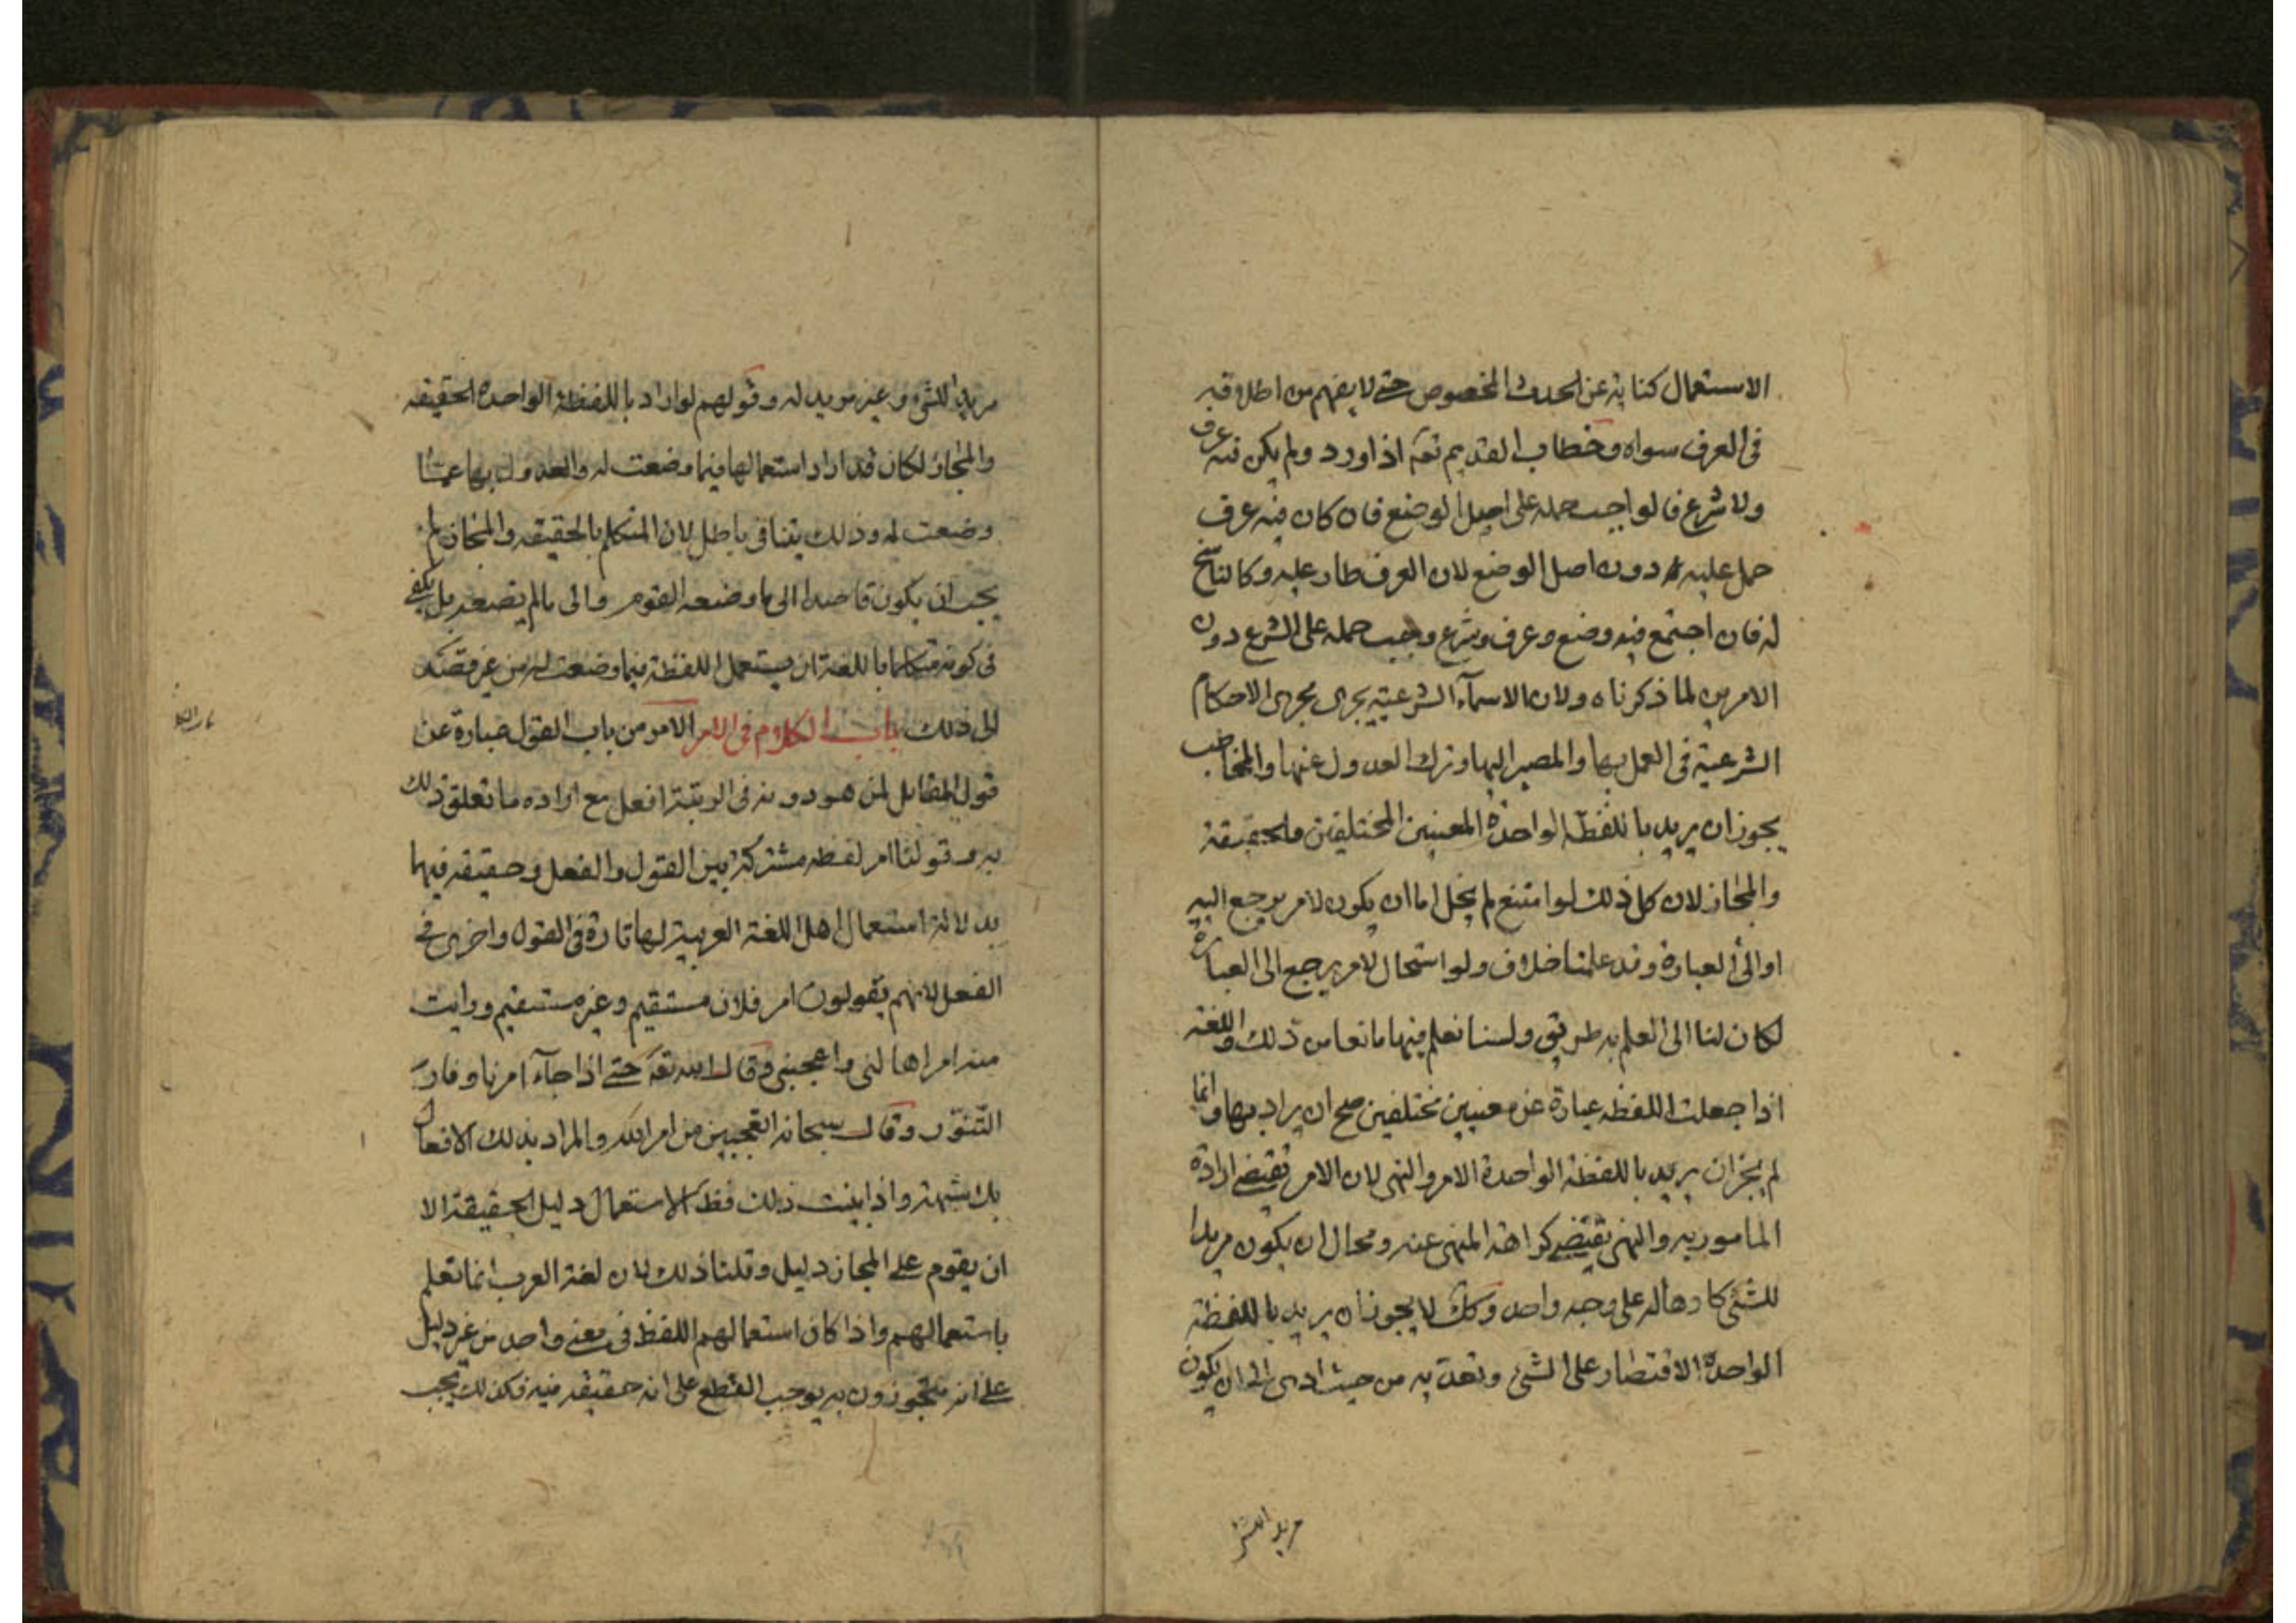 الاستعمال كناية عن الحدث المخصوص حتى لا يفهم من اطلاقه
فى العرف سواه وخطاب القديم تعه اذا ورد ولم يكن فيه عرف
ولا شرع فالواجب حمله على اصل الوضع فان كان فيه عرف
حمل عليه دون اصل الوضع لان العرف طار عليه وكالناسخ
له فان اجتمع فيه وضع وعرف وشرع وجب حمله على الشرع دون
الامرين لما ذكرناه ولان الاسمآء الشرعية يجرى مجرى الاحكام
الشرعية فى العمل بها والمصير اليها وترك العدول عنها والمخاطب
يجوز ان يريد باللفظة الواحدة المعنيين المختلفين والحقيقة
والمجاز لان كل ذلك لو امتنع لم يخل اما ان يكون لامر يرجع اليه
او الى العبارة وقد علمنا خلاف ولو استحال لامر يرجع الى العبارة
لكان لنا الى العلم به طريق ولسنا نعلم فيها مانعا من ذلك واللغة
اذا جعلت اللفظه عبارة عن معنيين مختلفين صح ان يراد بها وانما
لم يجز ان يريد باللفظة الواحدة الامر والنهى لان الامر تقتضى ارادة
المامور به والنهى تقتضى كراهة المنهى عنه ومحال ان يكون مريدا
للشئ كارها له على وجه واحد وكك لا يجوز ان يريد باللفظة
الواحدة الاقتصار على الشئ وتعديه من حيث ادى الى ان يكون
مريدا للشئ
مريدا للشئ وغير مريد له وقولهم لو اراد باللفظة الواحدة الحقيقه
والمجاز لكان قد اراد استعمالها فيما وضعت له والعدول بها عما
وضعت له وذلك يتنافى باطل لان المتكلم بالحقيقه والمجاز لم
يجب ان يكون قاصدا الى ما وضعه القوم والى ما لم يضعه بل يكفى
فى كونه متكلما باللغة ان يستعمل اللفظة فيما وضعت له من غير قصد
الى ذلك باب الكلام فى الامر الامر من باب القول عبارة عن
قول القائل لمن هو دونه فى الرتبة افعل مع اراده ما تعلق ذلك
به وقولنا امر لفظه مشتركة بين القول والفعل وحقيقه فيهما
بدلالة استعمال اهل اللغة العربية لها تارة فى القول واخرى فى
الفعل لانهم يقولون امر فلان مستقيم وغير مستقيم ورايت
منه امرا هالنى واعجبنى وقال الله تعه حتى اذا جآء امرنا وفار
التنور وقال سبحانه اتعجبين من امر الله والمراد بذلك الافعال
بلا شبهة واذا ثبت ذلك فظ الاستعمال دليل الحقيقة الا
ان يقوم على المجاز دليل وقلنا ذلك لان لغة العرب انما تعلم
باستعمالهم واذا كان استعمالهم اللفظ فى معنى واحد من غير دليل
على انهم متجوزون به يوجب القطع على انه حقيقه فيه فكذلك يجب